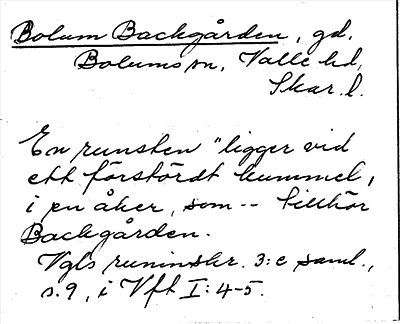 Bolum Backgården, gd,
Bolums sn, Valle hd,
Skar. l.
En runsten "ligger vid
ett förstördt kummel,
i en åker, som -- tillhör
Backgården.
Vgls runinskr. 3:e saml.,
s. 9, i Vft I: 4-5.